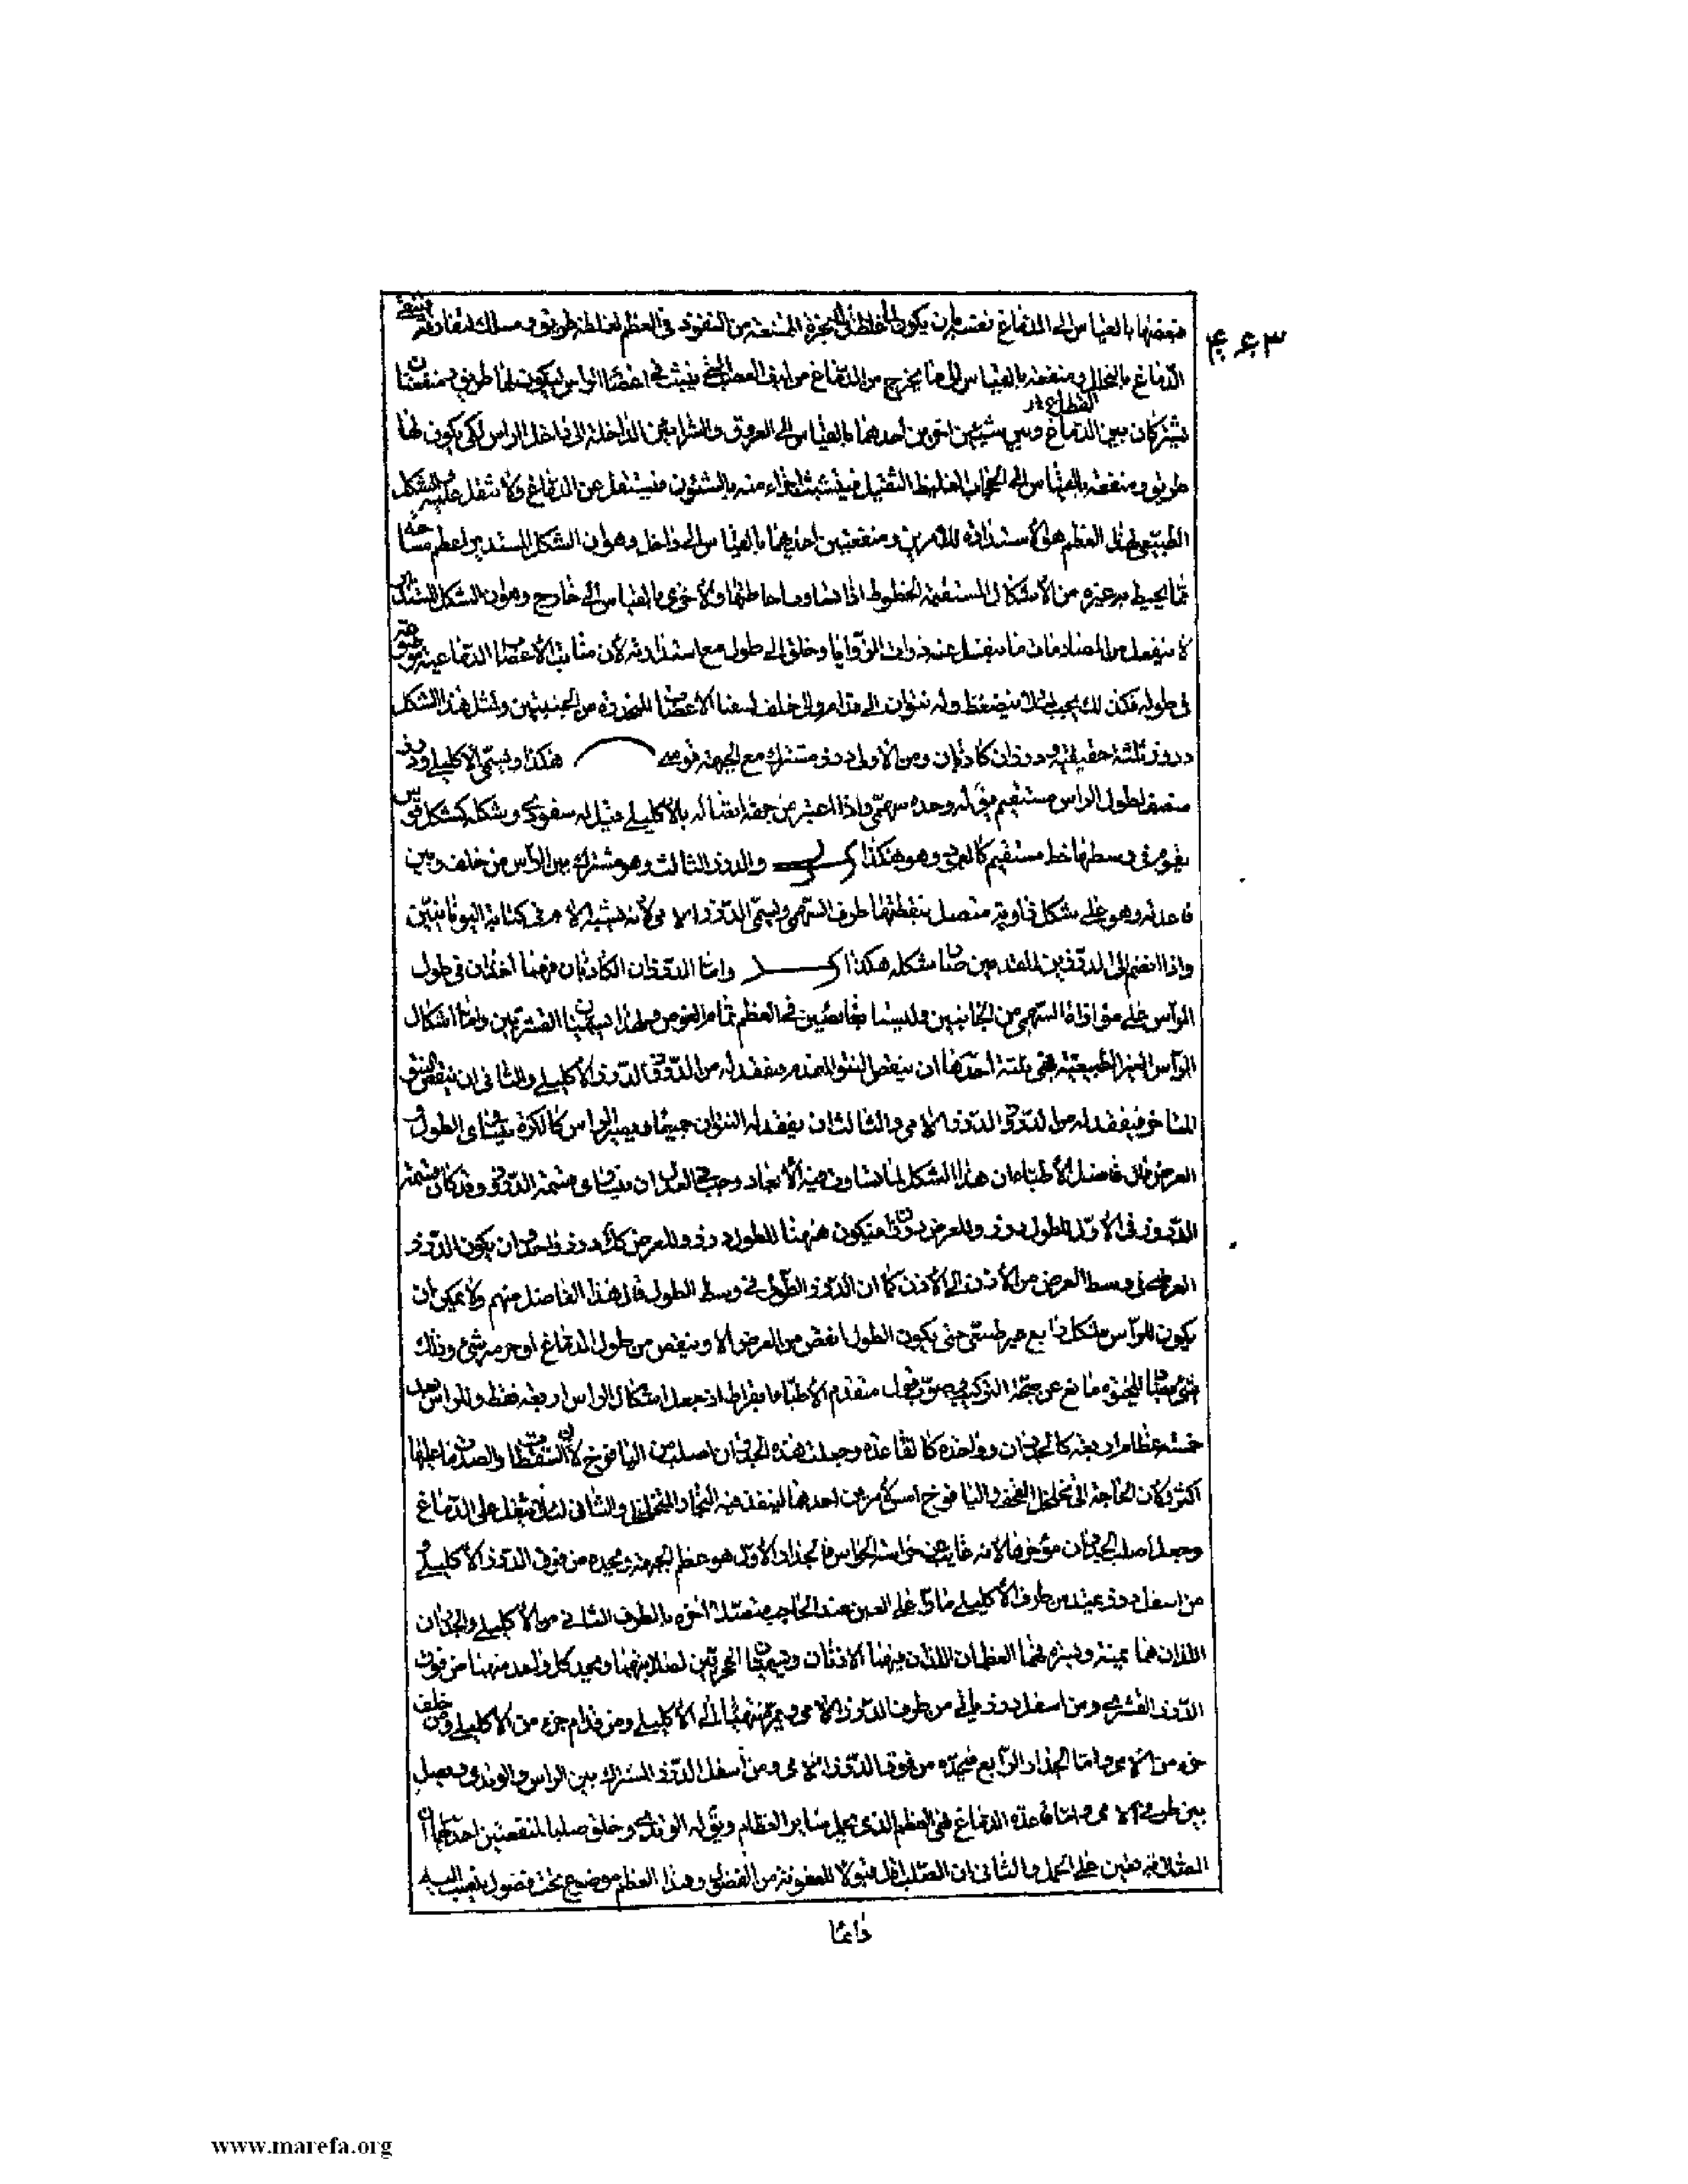 ۴۶۳
منفعتها بالقياس الى الدماغ نفسه بان يكون الابخرة الممتنعة من النفوذ فى العظم لغلظه طريق ومسلك ليفارقه فينتقى
الدماغ بالتحلل ومنفعته بالقياس الى ما يخرج من الدماغ من ليف العصب الذى ينبت فى اعضاء الراس ليكون لها طريق ومنفعتان
يشتركان بين الدماغ وبين شيئين اخرين احدهما بالقياس الى العروق والشرايين الداخلة الى داخل الراس لكى يكون لها
طريق ومنفعته بالقياس الى الحجاب الغليظ الثقيل فيتشبث اجزاء منه بالشئون فيستقل عن الدماغ ولا يثقل عليه والشكل
الطبيعى لهذا العظم هو الاستدارة لامرين ومنفعتين احدهما بالقياس الى داخل وهو ان الشكل المستدير اعظم مساحة
مما يحيط به غيره من الاشكال المستقيمة الخطوط اذا تساوت احاطتها والاخرى بالقياس الى خارج وهو ان الشكل المستدير
لا ينفعل من المصادمات ما ينفعل عنه ذوات الزوايا وخلق الى طول مع استدارته لان منابت الاعصاب الدماغية موضوعة
فى طوله فكذلك يجب لئلا ينضغط وله نتوان الى قدام والى خلف ليقيا الاعصاب المنحدرة من الجنبتين ولمثل هذا الشكل
دروز ثلثة حقيقية ودرزان كاذبان ومن الاولى درز مشترك مع الجبهة قوسى هكذا ويسمى الاكليلى ودرز
منصف لطول الراس مستقيم يقال له وحده سهمى واذا اعتبر من جهة اتصاله بالاكليلى قيل له سفودى وشكله كشكل قوس
يقوم فى وسطها خط مستقيم كالعمود وهو هكذا والدرز الثالث وهو مشترك بين الراس من خلف وبين
قاعدته وهو على شكل زاوية متصل بنقطتها طرف السهمى ويسمى الدرز اللامى لانه يشبه اللام فى كتابة اليونانيين
واذا انضم الى الدرزين المقدمين صار شكله هكذا واما الدرزان الكاذبان فهما اخذان فى طول
الراس على موازاة السهمى من الجانبين وليسا بغائصين فى العظم تمام الغوص ولهذا يسميان القشريين واما اشكال
الراس الغير الطبيعية فهى ثلثة احدها ان ينقص النتو المقدم فيفقد له من الدروز الدرز الاكليلى والثانى ان ينقص النتو
المؤخر فيفقد له من الدروز الدرز اللامى والثالث ان يفقد له النتوان جميعا ويصير الراس كالكرة متساوى الطول و
العرض قال فاضل الاطباء ان هذا الشكل لما تساوى فيه الابعاد وجب فى العدل ان يتساوى قسمة الدروز وقد كان قسمة
الدروز فى الاول للطول درز وللعرض درزان فيكون ههنا للطول درز وللعرض كك درز واحد وان يكون الدرز
العرضى فى وسط العرض من الاذن الى الاذن كما ان الدرز الطولى فى وسط الطول قال هذا الفاضل منهم ولا يمكن ان
يكون للراس شكل رابع غير طبيعى حتى يكون الطول انقص من العرض الا وينقص من طول الدماغ او جرمه شئ وذلك
مضاد للحيوة مانع عن صحة التركيب وصوب قول متقدم الاطباء بقراط اذ جعل اشكال الراس اربعة فقط وللراس بعد
خمسة عظام اربعة كالجدران وواحدة كالقاعدة وجعلت هذه الجدران اصلب من اليافوخ لان السقطات والصدمات عليها
اكثر ولان الحاجة الى تخلخل القحف واليافوخ امس لامرين احدهما لينفذ فيه البخار المتحلل والثانى لئلا يثقل على الدماغ
وجعل اصلب الجدران مؤخرها لانه غايب عن حراسة الحواس فالجدار الاول هو عظم الجبهة ويحده من فوق الدرز الاكليلى و
من اسفل درز يمتد من طرف الاكليلى مارا على العين عند الحاجب متصلا اخره بالطرف الثانى من الاكليلى والجدران
اللذان هما يمنة ويسرة فهما العظمان اللذان فيهما الاذنان ويسميان الحجريين لصلابتهما ويحد كل واحد منهما من فوق
الدرز القشرى ومن اسفل درز ياتى من طرف الدرز اللامى ويمر منتهيا الى الاكليلى ومن قدام جزء من الاكليلى ومن خلف
جزء من اللامى واما الجدار الرابع فيحده من فوق الدرز اللامى ومن اسفل الدرز المشترك بين الراس والوتدى ويصل
بين طرفى اللامى واما قاعدة الدماغ فهى العظم الذى يحمل ساير العظام ويقال له الوتدى وخلق صلبا لمنفعتين احديهما ان
الصلابة تعين على الحمل والثانى ان الصلب اقل قبولا للعفونة من الفضول وهذا العظم موضوع تحت فضول ينصب اليه
دائما
www.marefa.org